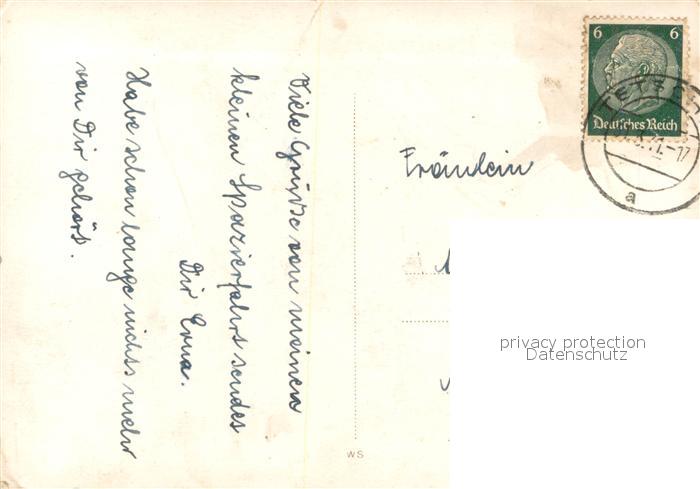 Viele Grüße von meinem
kleinen Spazierfahrt sendet
Dir Erna.
Habe schon lange nichts mehr
von Dir gehört.
Fräulein
6 6
Deutsches Reich
a
WS
privacy protection
Datenschutz